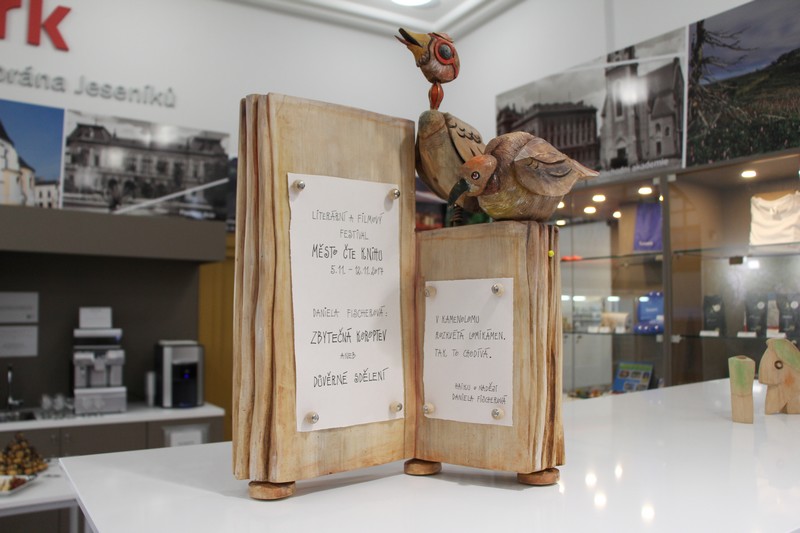 rk
brána Jeseníků
LITERÁRNÍ A FILMOVÝ
FESTIVAL
MĚSTO ČTE KNIHU
5.11. - 12.11.2017
DANIELA FISCHEROVÁ:
ZBYTEČNÁ KOROPTEV
ANEB
DŮVĚRNÉ SDĚLENÍ
V KAMENOLOMU
ROZKVĚTÁ LOMIKÁMEN.
TAK TO CHODÍVÁ.
HAIKU O NADĚJI
DANIELA FISCHEROVÁ